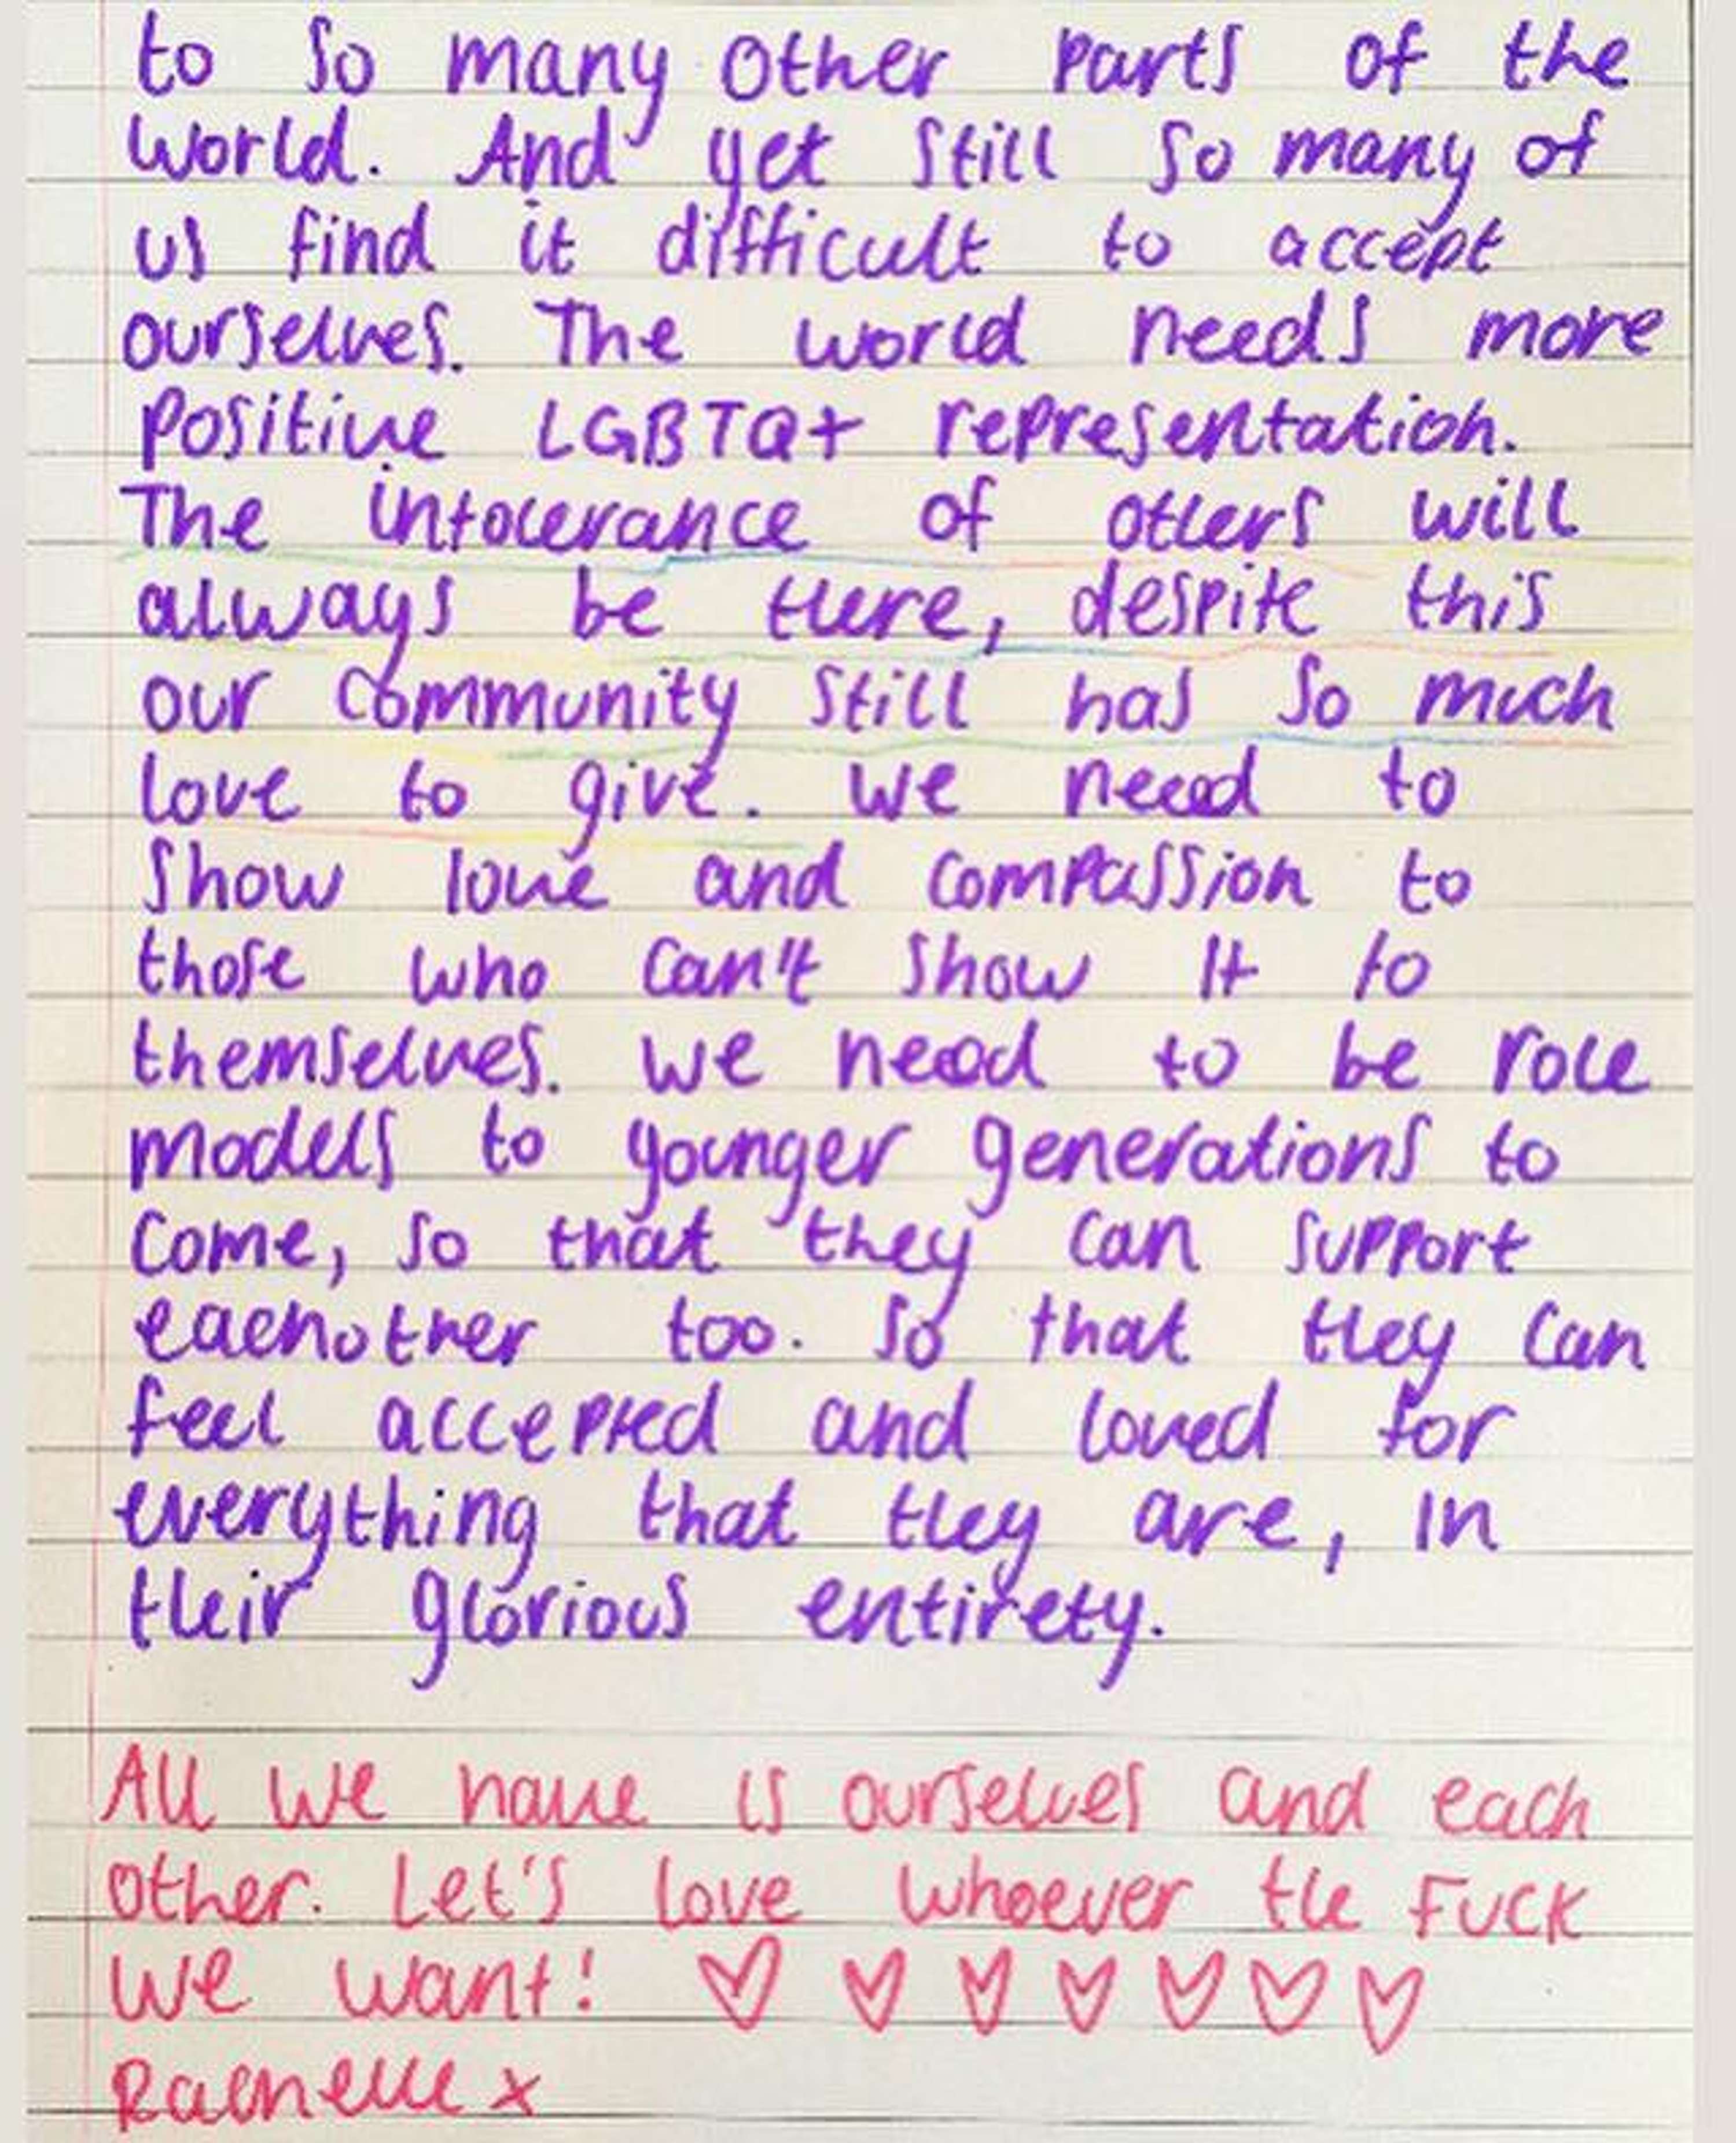 to so many other parts of the
world. And yet still so many of
us find it difficult to accept
ourselves. The world needs more
positive LGBTQ+ representation.
The intolerance of others will
always be there, despite this
our community still has so much
love to give. We need to
show love and compassion to
those who can't show it to
themselves. We need to be role
models to younger generations to
come, so that they can support
eachother too. So that they can
feel accepted and loved for
everything that they are, in
their glorious entirety.
All we have is ourselves and each
other. Let's love whoever the FUCK
we want! ♡ ♡ ♡ ♡ ♡ ♡ ♡
x